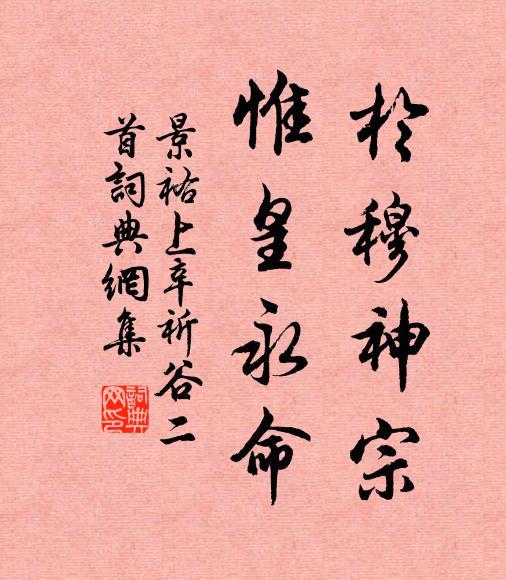 於穆神宗
惟皇永命
景祐上辛祈谷二
首詞典網集
詞典
网印